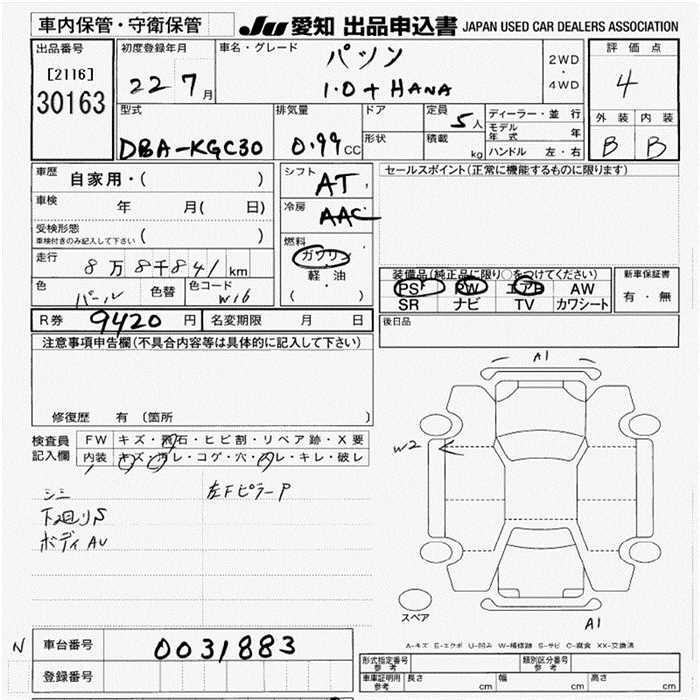 車内保管・守衛保管
JU 愛知 出品申込書 JAPAN USED CAR DEALERS ASSOCIATION
出品番号
[2116]
30163
初度登録年月
22 7月
車名・グレード
パッソ
1.0 + HANA
2WD
・
4WD
評価点
4
外装 内装
B B
型式
DBA-KGC30
排気量
0.99 CC
ドア
形状
定員
5人
積載
kg
ディーラー・並行
モデル年式 年
ハンドル 左・右
車歴
自家用・( )
車検
年 月( 日)
受検形態
車検付きのみ記入して下さい ( )
走行
8万8千841km
色
パール
色替
色コード
W16
シフト
AT
冷房
AAC
燃料
ガソリン
・
軽油
( )
セールスポイント(正常に機能するものに限ります)
装備品(純正品に限り○をつけてください)
PS PW エアB AW
SR ナビ TV カワシート
新車保証書
有・無
後日品
R券 9420円 名変期限 月 日
注意事項申告欄(不具合内容等は具体的に記入して下さい)
修復歴 有 〔箇所
検査員
記入欄
FW キズ・飛石・ヒビ割・リペア跡・X要
内装 キズ・汚レ・コゲ・穴・ハレ・キレ・破レ
シミ
左Fピラー P
下廻りS
ボディAU
A1
W2
スペア
A1
A-キズ E-エクボ U-凹み W-補修跡 S-サビ C-腐食 XX-交換済
N
車台番号
0031883
登録番号
形式指定番号
参考
類別区分番号
参考
車庫証明用
参考
長さ cm 幅 cm 高さ cm